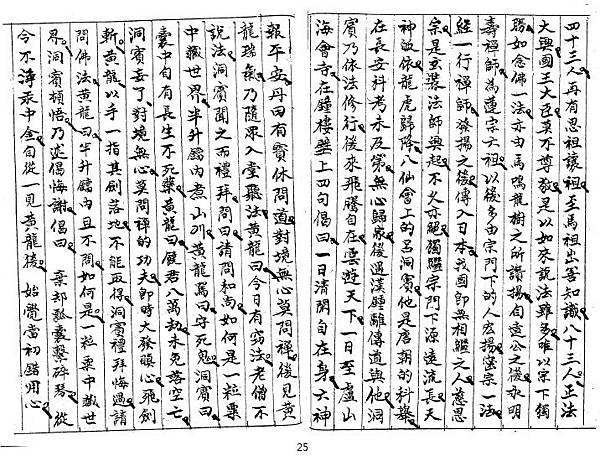 四十三人再有思祖讓祖至馬祖出善知識八十三人正法
大興國王大臣莫不尊敬是以如來說法雖多唯以宗下獨
勝如念佛一法亦由馬鳴龍樹之所讚揚自遠公之後永明
壽禪師為蓮宗六祖以後多由宗門下的人宏揚密宗一法
經一行禪師發揚之後傳入日本我國即無相繼之人慈恩
宗是玄奘法師興起不久亦絕獨臨宗門下源遠流長天
神歸依龍虎歸降八仙會上的呂洞賓他是唐朝的科舉
在長安科考未及第無心歸家後遇漢鍾離傳道與他洞
賓乃依法修行後來飛騰自在雲遊天下一日至盧山
海會寺在鐘樓壁上四句偈曰一日清閒自在身六神
報平安丹田有寶休問道對境無心莫問禪後見黃
龍瑞氣乃隨眾入堂聽法黃龍曰今日有竊法老僧不
說法洞賓聞之而禮拜問曰請問和尚如何是一粒粟
中藏世界半升鐺內煮山川黃龍罵曰守死鬼洞賓曰
囊中自有長生不死藥黃龍曰饒君八萬劫未免落空亡
洞賓妄了對境無心莫問禪的功夫即時大發瞋心飛劍
斬黃龍以手一指其劍落地不能取得洞賓禮拜悔過請
問佛法黃龍曰半升鐺內且不問如何是一粒粟中藏世
界洞賓頓悟乃述偈悔謝偈曰 棄却瓢囊擊碎琴 從
今不 汞中金自從一見黃龍後 始覺當初錯用心
25